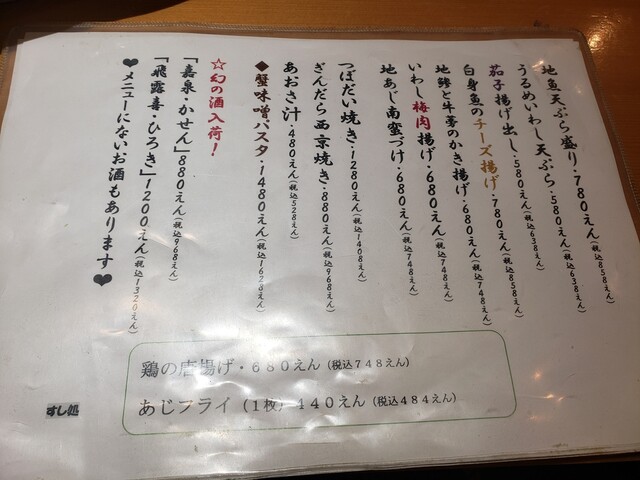 地魚天ぷら盛り・780えん(税込858えん)
うるめいわし天ぷら・580えん(税込638えん)
茄子揚げ出し・580えん(税込638えん)
白身魚のチーズ揚げ・780えん(税込858えん)
地鯵と牛蒡のかき揚げ・680えん(税込748えん)
いわし梅肉揚げ・680えん(税込748えん)
地あじ南蛮づけ・680えん(税込748えん)
つぼだい焼き・1280えん(税込1408えん)
ぎんだら西京焼き・880えん(税込968えん)
あおさ汁・480えん(税込528えん)
◆蟹味噌パスタ・1480えん(税込1628えん)
☆幻の酒入荷!
「嘉泉・かせん」880えん(税込968えん)
「飛露喜・ひろき」1200えん(税込1320えん)
❤メニューにないお酒もあります❤
鶏の唐揚げ・680えん(税込748えん)
あじフライ(1枚)440えん(税込484えん)
すし処